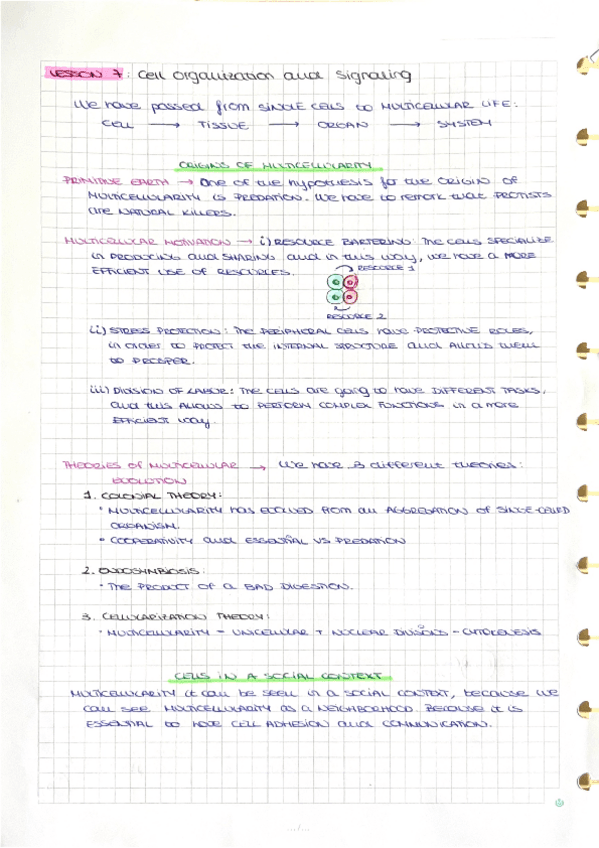 LESSON 7: Cell organization and Signaling
We have passed from SINGLE CELLS to MULTICELLULAR LIFE:
CELL → TISSUE → ORGAN → SYSTEM
ORIGINS OF MULTICELLULARITY
PRIMITIVE EARTH → One of the hypothesis for the ORIGIN OF
MULTICELLULARITY IS PREDATION. We have to remark that PROTISTS
are NATURAL KILLERS.
MULTICELLULAR MOTIVATION → i) RESOURCE BARTERING: The CELLS SPECIALIZE
in PRODUCING and SHARING and in this way, we have a MORE
EFFICIENT USE OF RESOURCES.
RESOURCE 1
RESOURCE 2
ii) STRESS PROTECTION: The PERIPHERAL CELLS have PROTECTIVE ROLES,
in order to PROTECT the INTERNAL STRUCTURE and ALLOWS them
to PROSPER.
iii) DIVISION OF LABOR: The CELLS are going to have DIFFERENT TASKS,
and this ALLOWS to PERFORM COMPLEX FUNCTIONS in a more
EFFICIENT way.
THEORIES OF MULTICELLULAR → We have 3 different theories:
EVOLUTION
1. COLONIAL THEORY:
· MULTICELLULARITY has EVOLVED FROM an AGGREGATION OF SINGLE-CELLED
ORGANISM.
- COOPERATIVITY and ESSENTIAL VS PREDATION
2. ENDOSYMBIOSIS:
· The PRODUCT OF a BAD DIGESTION.
3. CELLULARIZATION THEORY:
· MULTICELLULARITY = UNICELLULAR + NUCLEAR DIVISIONS - CYTOKENESIS
CELLS IN A SOCIAL CONTEXT
MULTICELLULARITY it can be seen in a SOCIAL CONTEXT, because we
can see MULTICELLULARITY as a NEIGHBORHOOD. Because it is
ESSENTIAL to have CELL ADHESION and COMMUNICATION.
.../...